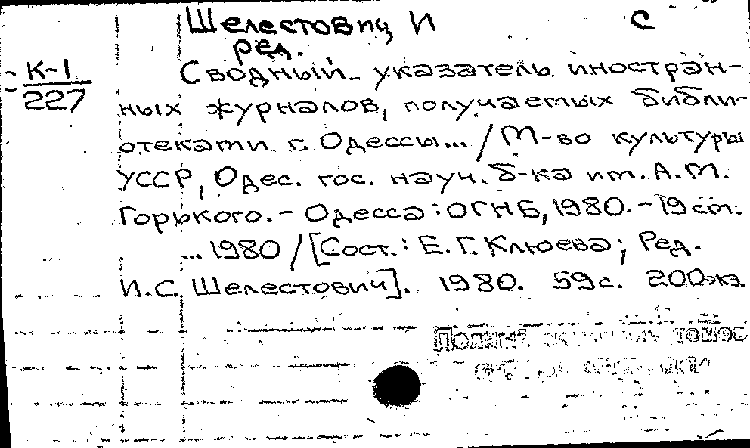 Шелестович И С
ред.
К-1
227
Сводный указатель иностран-
ных журналов, получаемых библи-
отеками г. Одессы... / М-во культуры
УССР, Одес. гос. науч. б-ка им. А.М.
Горького. - Одесса: ОГНБ, 1980. - 19 cm.
... 1980 / [Сост.: Е.Г. Клюева; Ред.
И.С. Шелестович]. 1980. 59 с. 200 экз.
томов